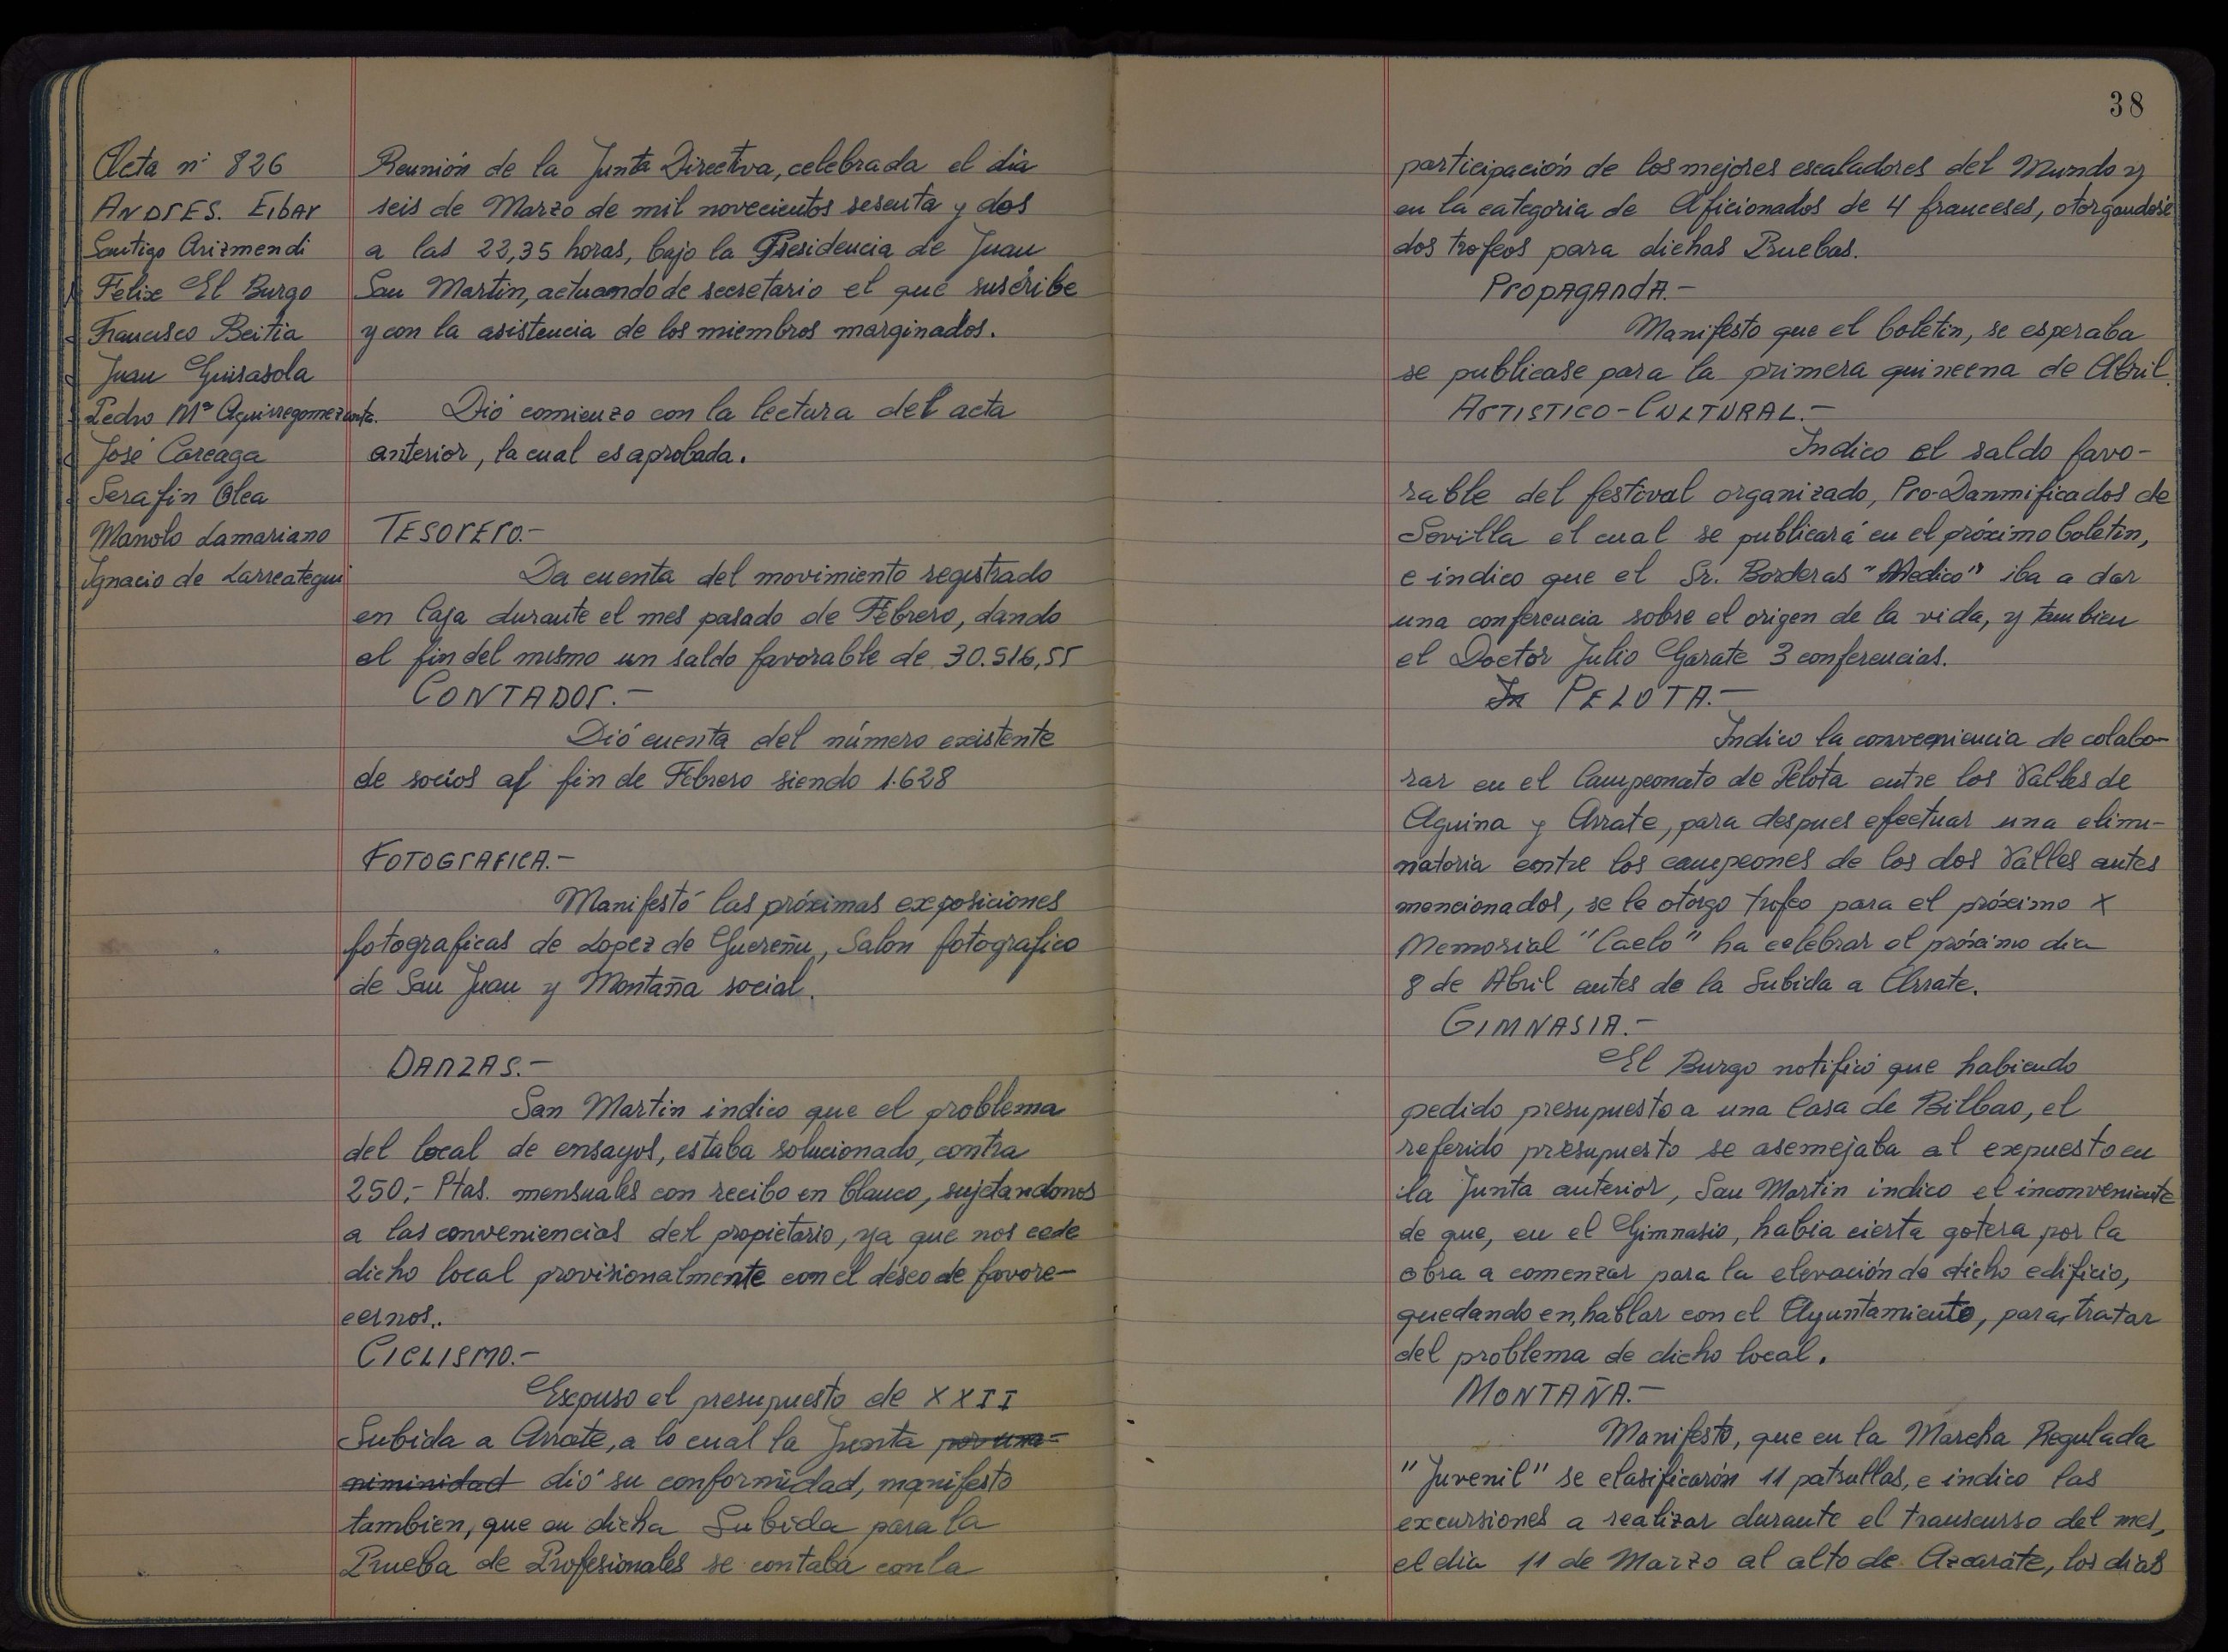 Acta nº 826
Andres. Eibar
Santigo Arizmendi
Felix El Burgo
Francisco Beitia
Juan Guisasola
Pedro Mª Aguirregomezcorta.
José Careaga
Serafin Olea
Manolo Lamariano
Ignacio de Larreategui
Reunión de la Junta Directiva, celebrada el dia
seis de Marzo de mil novecientos sesenta y dos
a las 22,35 horas, bajo la Presidencia de Juan
San Martin, actuando de secretario el que suscribe
y con la asistencia de los miembros marginados.
Dió comienzo con la lectura del acta
anterior, la cual es aprobada.
TESORERO.-
Da cuenta del movimiento registrado
en Caja durante el mes pasado de Febrero, dando
al fin del mismo un saldo favorable de 30.516,55
CONTADOR.-
Dió cuenta del número existente
de socios al fin de Febrero siendo 1.628
FOTOGRAFICA.-
Manifestó las próximas exposiciones
fotograficas de Lopez de Guereñu, Salon fotografico
de San Juan y Montaña social.
DANZAS.-
San Martin indico que el problema
del local de ensayos, estaba solucionado, contra
250,- Ptas. mensuales con recibo en blanco, sujetandonos
a las conveniencias del propietario, ya que nos cede
dicho local provisionalmente con el deseo de favore-
cernos.
CICLISMO.-
Expuso el presupuesto de XXII
Subida a Arrate, a lo cual la Junta por una-
niminidad dió su conformidad, manifesto
tambien, que en dicha Subida para la
Prueba de Profesionales se contaba con la
38
participación de los mejores escaladores del Mundo y
en la categoria de Aficionados de 4 franceses, otorgandose
dos trofeos para dichas Pruebas.
PROPAGANDA.-
Manifesto que el boletin, se esperaba
se publicase para la primera quincena de Abril.
ARTISTICO-CULTURAL.-
Indico el saldo favo-
rable del festival organizado, Pro-Danmificados de
Sevilla el cual se publicará en el próximo boletin,
e indico que el Sr. Borderas "Medico" iba a dar
una conferencia sobre el origen de la vida, y tambien
el Doctor Julio Garate 3 conferencias.
In PELOTA.-
Indico la conveeniencia de colabo-
rar en el Campeonato de Pelota entre los Valles de
Aguina y Arrate, para despues efectuar una elimi-
natoria entre los campeones de los dos Valles antes
mencionados, se le otorgo trofeo para el próximo X
Memorial "Caelo" ha celebrar el próximo dia
8 de Abril antes de la Subida a Arrate.
GIMNASIA.-
El Burgo notificó que habiendo
pedido presupuesto a una Casa de Bilbao, el
referido presupuesto se asemejaba al expuesto en
la Junta anterior, San Martin indico el inconveniente
de que, en el Gimnasio, habia cierta gotera por la
obra a comenzar para la elevación de dicho edificio,
quedando en, hablar con el Ayuntamiento, para, tratar
del problema de dicho local.
MONTAÑA.-
Manifesto, que en la Marcha Regulada
"Juvenil" se clasificarón 11 patrullas, e indico las
excursiones a realizar durante el transcurso del mes,
el dia 11 de Marzo al alto de Azcarate, los dias